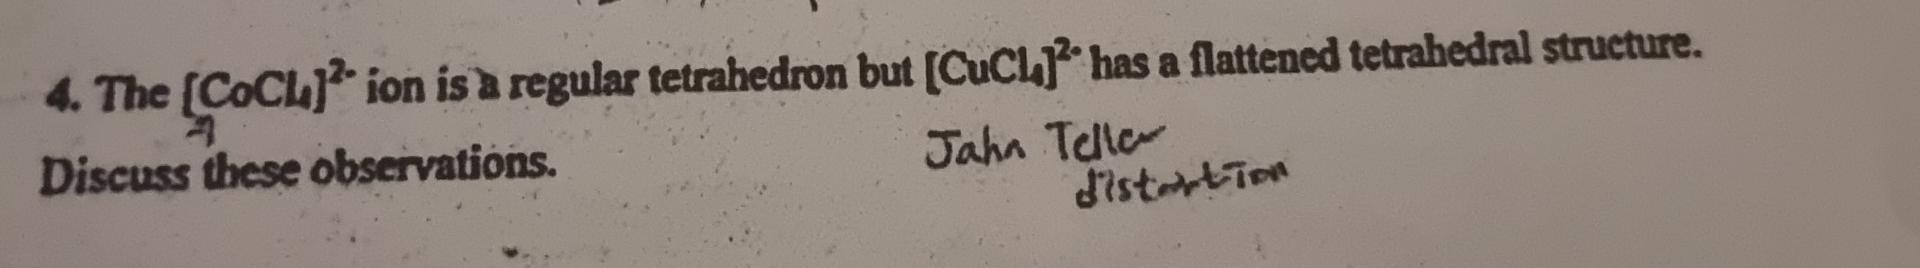 4. The [CoCl₄]²⁻ ion is a regular tetrahedron but [CuCl₄]²⁻ has a flattened tetrahedral structure.
Discuss these observations.
Jahn Teller
distortion